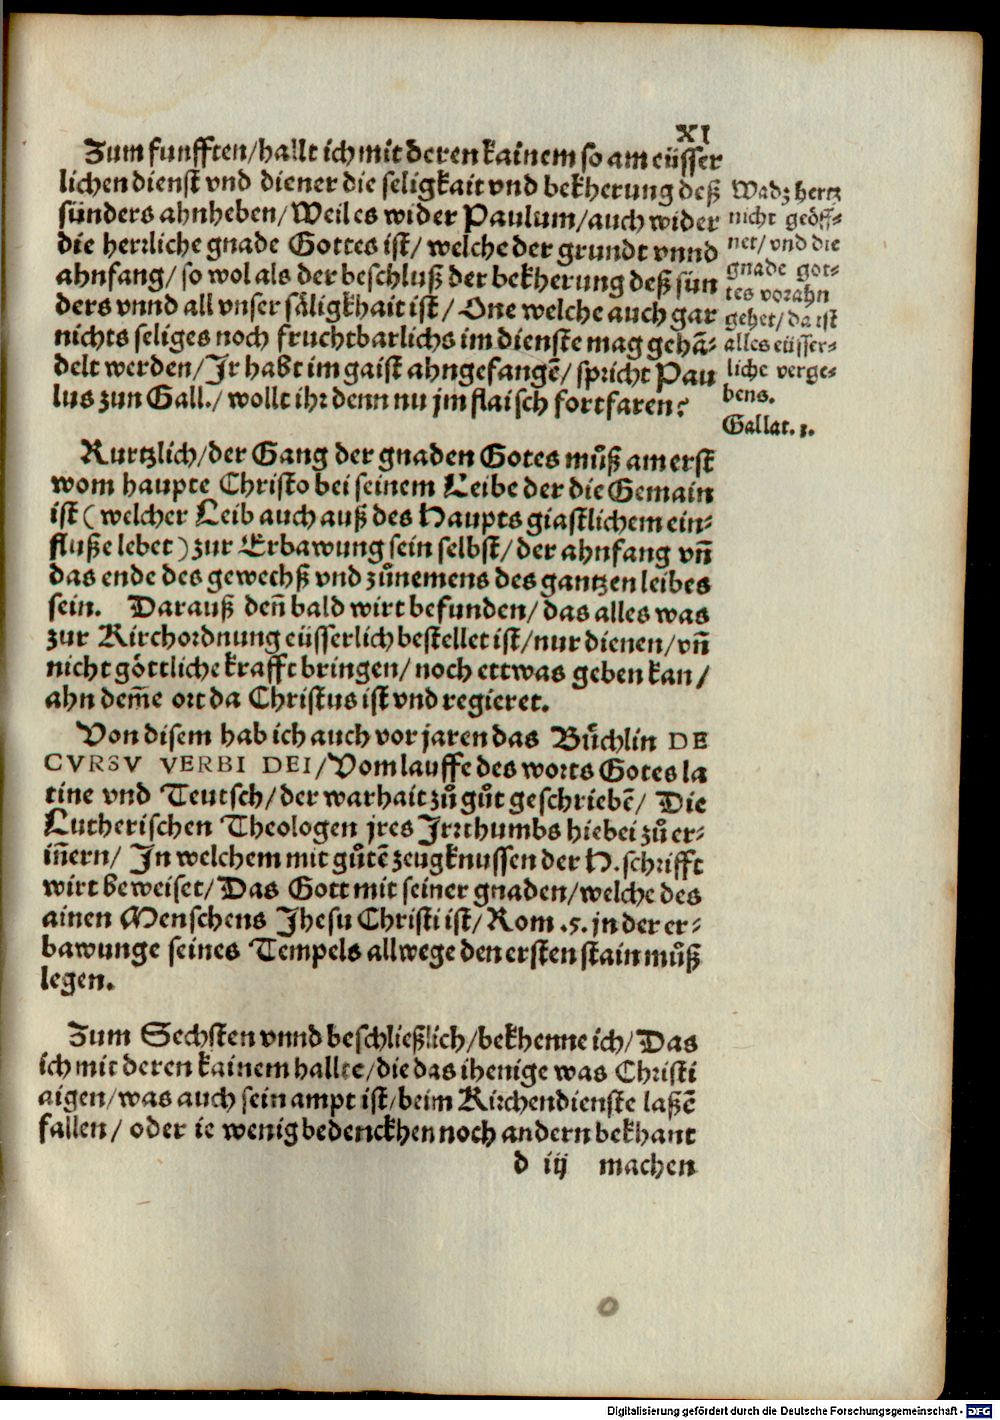 XI
Zum funfften/hallt ich mit deren kainem so am eüsser
lichen dienst vnd diener die seligkait vnd bekherung deß
sünders ahnheben/Weil es wider Paulum/auch wider
die herꝛliche gnade Gottes ist/ welche der grundt vnnd
ahnfang/ so wol als der beschluß der bekherung deß sün
ders vnnd all vnser säligkhait ist/ One welche auch gar
nichts seliges noch fruchtbarlichs im dienste mag gehā-
delt werden/Ir habt im gaist ahngefangē/ spricht Pau
lus zun Gall./ wollt ihr denn nu jm flaisch fortfaren?
Wadz hertz
nicht geöff-
net/ vnd die
gnade got-
tes vorahn
gehet/ da ist
alles eüsser-
liche verge-
bens.
Gallat. 3.
Kurtzlich/der Gang der gnaden Gotes můß am erst
wom haupte Christo bei seinem Leibe der die Gemain
ist ( welcher Leib auch auß des Haupts giastlichem ein-
fluße lebet ) zur Erbawung sein selbst/ der ahnfang vñ
das ende des gewechß vnd zůnemens des gantzen leibes
sein. Darauß deñ bald wirt befunden/ das alles was
zur Kirchordnung eüsserlich bestellet ist/nur dienen/ vñ
nicht göttliche krafft bringen/ noch ettwas geben kan/
ahn dem̄e ort da Christus ist vnd regieret.
Von disem hab ich auch vor jaren das Bůchlin DE
CVRSV VERBI DEI/Vom lauffe des worts Gotes la
tine vnd Teutsch/ der warhait zů gůt geschriebē/ Die
Lutherischen Theologen jres Irꝛthumbs hiebei zů er-
iñern/ In welchem mit gůtē zeugknussen der H. schrifft
wirt beweiset/ Das Gott mit seiner gnaden/welche des
ainen Menschens Jhesu Christi ist/ Rom .5. jn der er-
bawunge seines Tempels allwege den ersten stain můß
legen.
Zum Sechsten vnnd beschließlich/bekhenne ich/ Das
ich mit deren kainem hallte/die das ihenige was Christi
aigen/was auch sein ampt ist/beim Kirchendienste laßē
fallen/ oder ie wenig bedenckhen noch andern bekhant
d iij machen
Digitalisierung gefördert durch die Deutsche Forschungsgemeinschaft - DFG